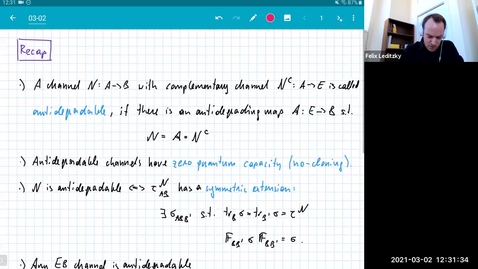 12:31
03-02
Felix Leditzky
Recap
·) A channel N: A→B with complementary channel Nᶜ: A→E is called
antidegradable, if there is an antidegrading map A: E→B s.t.
N = A∘Nᶜ
·) Antidegradable channels have zero quantum capacity (no-cloning).
·) N is antidegradable ⇔ τ_AB^N has a symmetric extension:
∃ σ_ABB' s.t. tr_B σ = tr_B' σ = τ^N
𝔽_BB' σ 𝔽_BB' = σ.
·) Any EB channel is antidegradable
2021-03-02 12:31:34